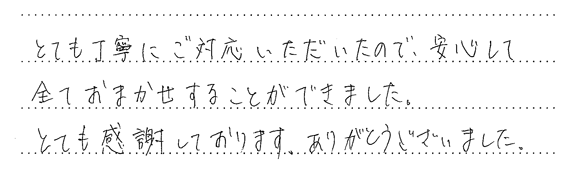 とても丁寧にご対応いただいたので、安心して
全ておまかせすることができました。
とても感謝しております。ありがとうございました。